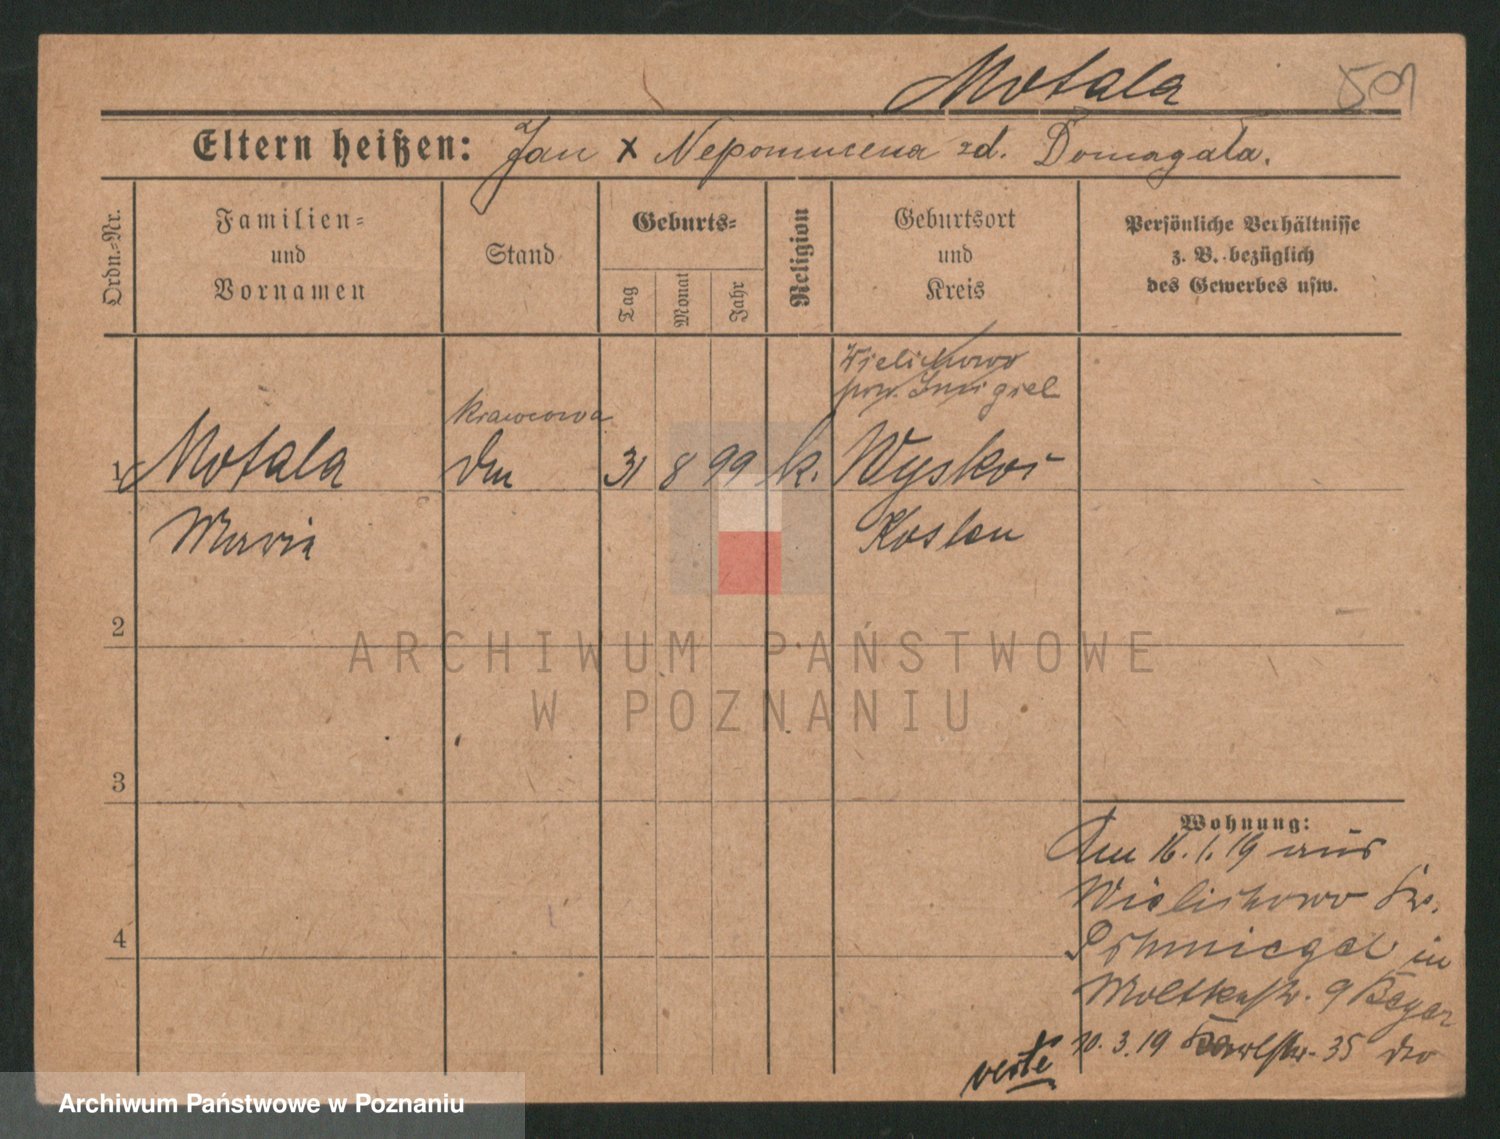 Motala 501
Eltern heißen: Jan x Nepomucena zd. Domagała.
Ordn.-Nr.
Familien-
und
Vornamen
Stand
Geburts-
Tag
Monat
Jahr
Religion
Geburtsort
und
Kreis
Persönliche Verhältnisse
z. B. bezüglich
des Gewerbes usw.
Wielichowo
pow. Smigiel
krawcowa
1 Motala 31 8 99 k. Wyskoć
Maria Kosten
2
3
4
Wohnung:
Am 16.1.19 aus
Wielichowo Krs.
Schmiegel in
Moltkestr. 9 Beyer
10.3.19 Karlstr. 35 dto
verte
ARCHIWUM PAŃSTWOWE
W POZNANIU
Archiwum Państwowe w Poznaniu